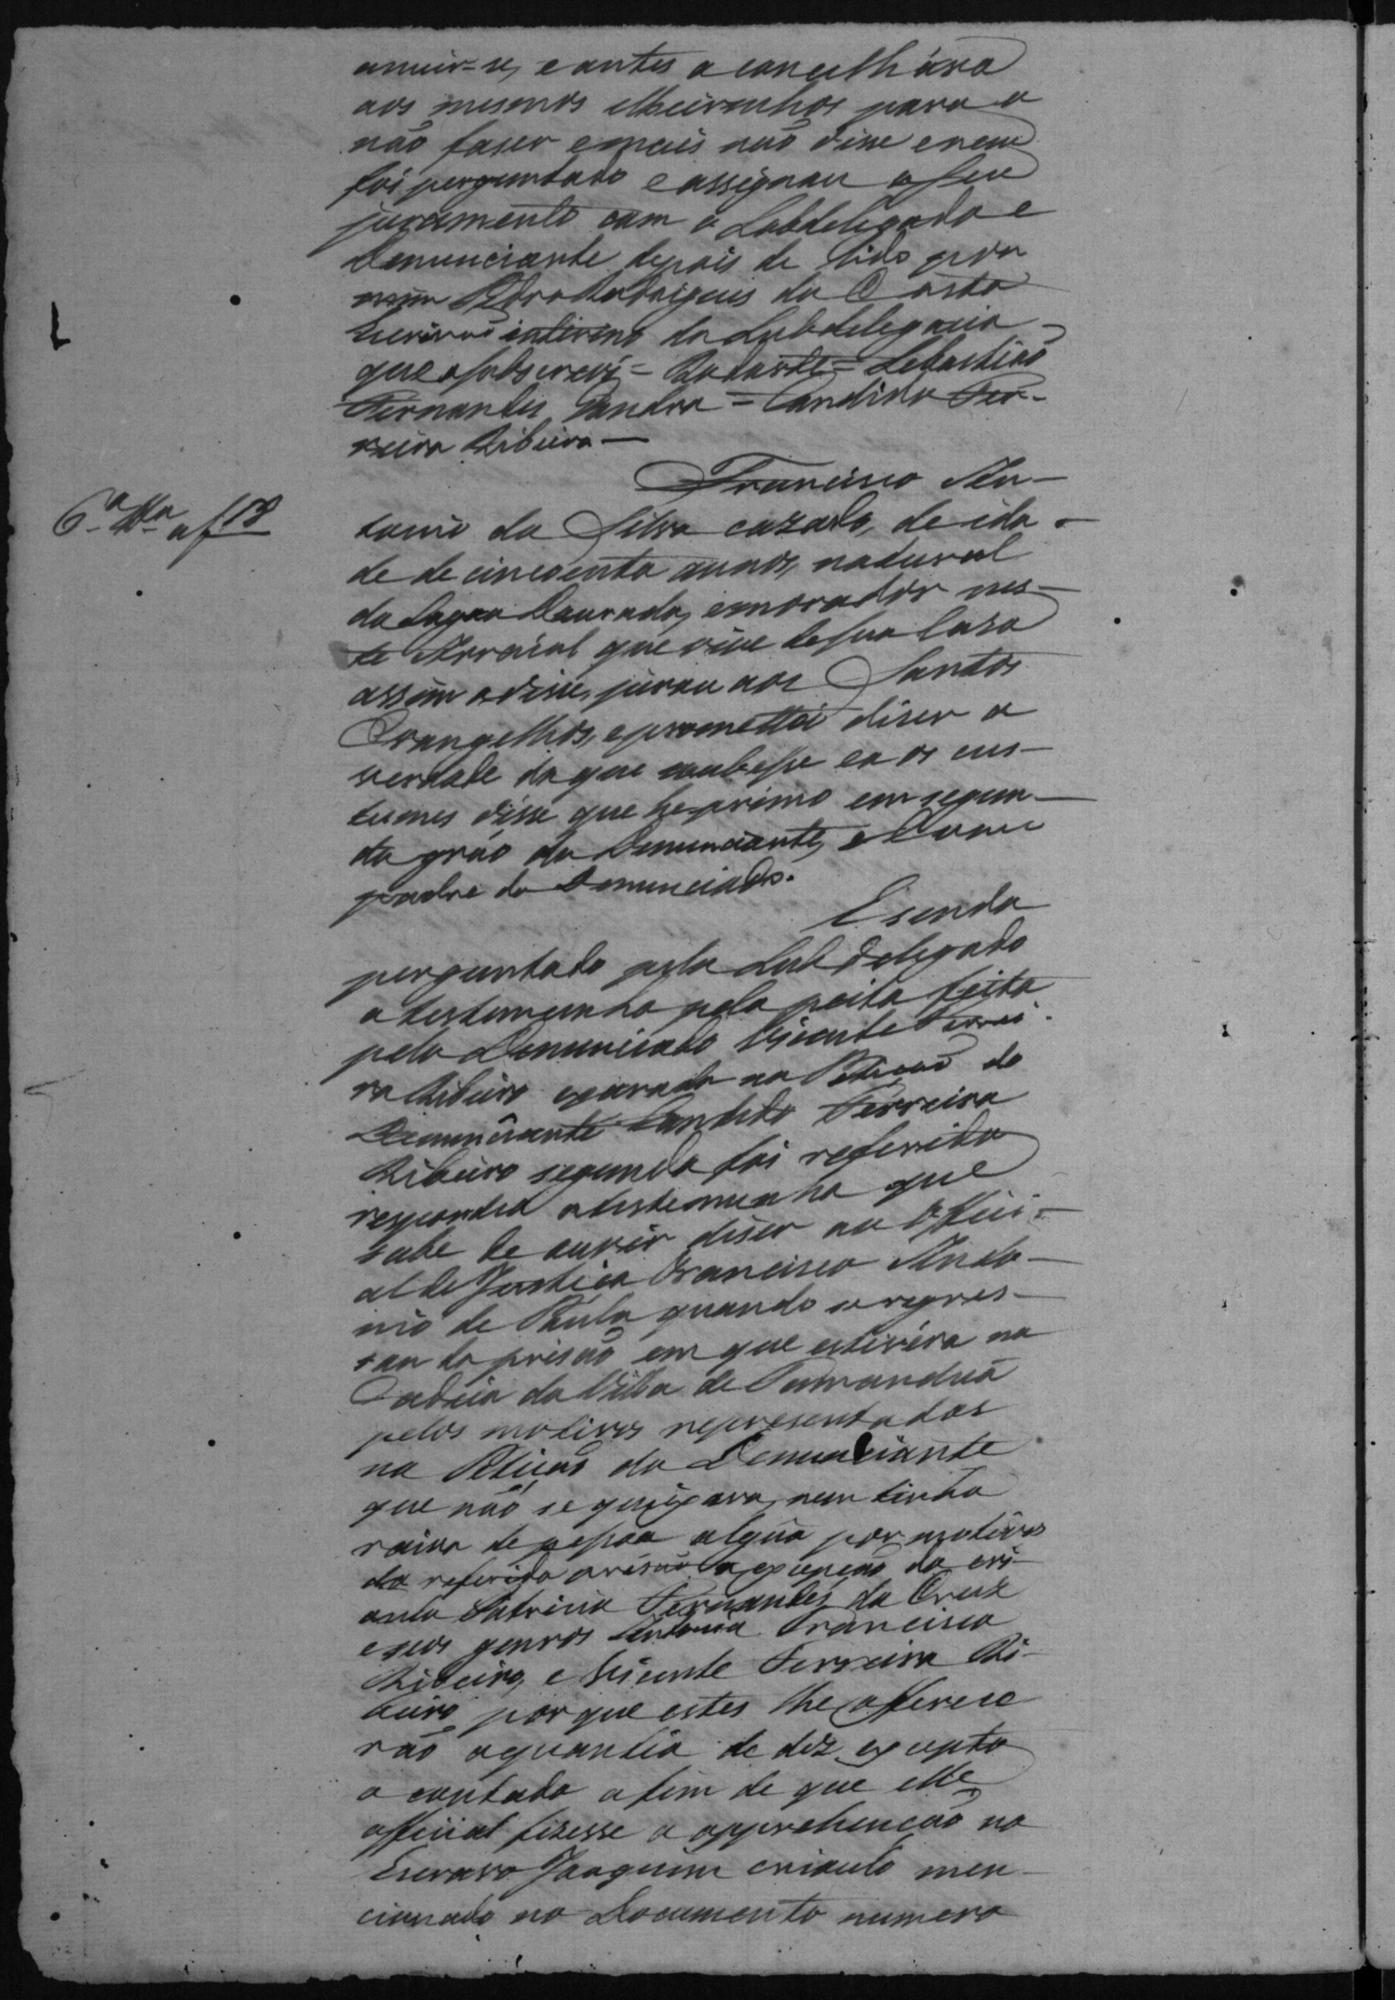 annuir-se, e antes aconcelhára
aos mesmos Meirinhos para o
não faser e mais não disse e nem
foi perguntado e assignou o seu
juramento com o Subdelegado e
Denunciante depois de lido por
mim Pedro Rodrigues da Costa
Escrivão interino da Subdelegacia
que o subscrevi = Roharte = Sebastião
Fernandes Pandra = Candido Fer-
reira Ribeiro —
Francisco An-
6.ª Tta af 18
tonio da Silva cazado, de ida-
de de cincoenta annos, natural
da Lagoa Dourada, e morador nes-
te Arraial que vive de sua Casa
assim o disse, jurou aos Santos
Evangelhos, e prometteo diser a
verdade do que soubesse e a os cus-
tumes disse que he primo em segun-
do gráo do Denunciante, e Com
padre do Denunciado.
E sendo
perguntado pelo Subdelegado
a testemunha pela peita feita
pelo Denunciado Vicente Ferrei-
ra Ribeiro exarada na Petição do
Denunciante Candido Ferreira
Ribeiro segundo foi referido
respondeo a testemunha que
sabe de ouvir diser ao Offici-
al de Justiça Francisco Anto-
nio de Paula quando se regres-
sou da prisão em que estivéra na
Cadeia da Villa de Tamanduá
pelos motivos representados
na Petição do Denunciante
que não se queixava, nem tinha
raiva de pessoa algũa por motivos
da referida prisão a excepção da cri-
oula Patricia Fernandes da Cruz
e seos genros Antonio Francisco
Ribeiro, e Vicente Ferreira Ri-
beiro porque estes lhe offerece
rão a quantia de dez excepto
o contado a fim de que elle
official fizesse a apprehenção no
Escravo Joaquim crioulo men-
cionado no Documento numero